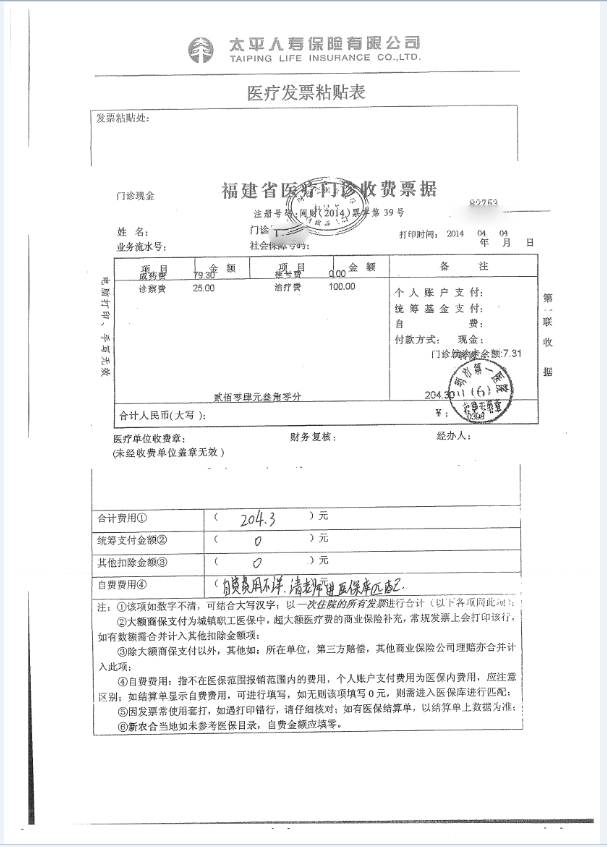 太平人寿保险有限公司
TAIPING LIFE INSURANCE CO.,LTD.
医疗发票粘贴表
发票粘贴处:
门诊现金
福建省医疗门诊收费票据
82753
注册号码:闽财(2014)票字第 39 号
姓名: 门诊
打印时间: 2014 年 04 月 04 日
业务流水号: 社会保障号码:
项目 金额 项目 金额 备注
成药费 79.30 挂号费 0.00
诊察费 25.00 治疗费 100.00
个人账户支付:
统筹基金支付:
自费:
付款方式: 现金:
门诊 余额:7.31
电脑打印、手写无效
第一联收据
贰佰零肆元叁角零分 204.30
合计人民币(大写): ¥:
市第一医院
(6)
医疗单位收费章: 财务复核: 经办人:
(未经收费单位盖章无效)
合计费用① ( 204.3 )元
统筹支付金额② ( 0 )元
其他扣除金额③ ( 0 )元
自费费用④ ( 自费费用不详,请老师进医保库匹配。 元
注:①该项如数字不清,可结合大写汉字;以一次住院的所有发票进行合计(以下各项同此项);
②大额商保支付为城镇职工医保中,超大额医疗费的商业保险补充,常规发票上会打印该行,
如有数额需合并计入其他扣除金额项;
③除大额商保支付以外,其他如:所在单位,第三方赔偿,其他商业保险公司理赔亦合并计
入此项;
④自费费用:指不在医保范围报销范围内的费用,个人账户支付费用为医保内费用,应注意
区别;如结算单显示自费费用,可进行填写,如无则该项填写 0 元,则需进入医保库进行匹配;
⑤因发票常使用套打,如遇打印错行,请仔细核对;如有医保结算单,以结算单上数据为准;
⑥新农合当地如未参考医保目录,自费金额应填零。